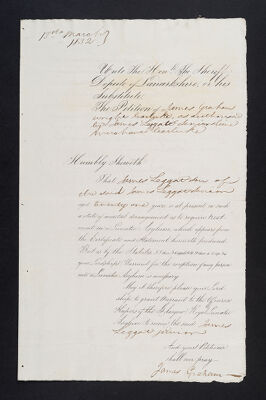 13th March
1832
Unto The Honble The Sheriff
Depute of Lanarkshire, or his
Substitute.
The Petition of James Graham
as authorised
by James Leggat Senior
Humbly Sheweth
That James Leggat Son of
the said James Leggat Senior
and twenty one years is at present in such
a state of mental derangement as to require treat-
ment in a Lunatic Asylum, which appears from
the Certificate and Statement herewith produced.
But as by the Statutes
your Lordship's Warrant for the reception of any person
into a Lunatic Asylum is necessary
May it therefore please your Lord-
ship to grant Warrant to the Officers
Keepers of the Glasgow Royal Lunatic
Asylum to receive the said James
Leggat Junior
And your Petitioner
shall ever pray
James Graham